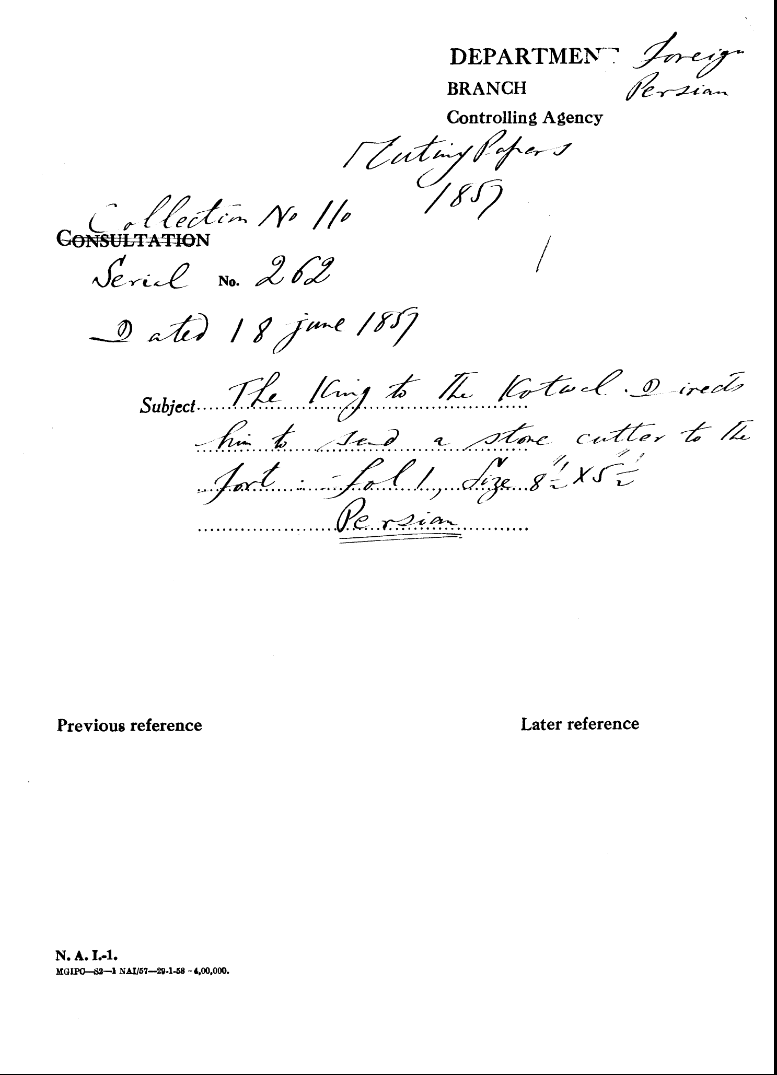 DEPARTMENT Foreign
BRANCH Persian
Controlling Agency
Mutiny Papers
1857
Collection No 110
CONSULTATION
Serial No. 262
Dated 18 june 1857
Subject The King to the Kotwal. Directs
him to send a stone cutter to the
fort :- fol 1, Size 8½" X 5½"
Persian
Previous reference Later reference
N. A. I.-1.
MGIPC—S2—1 NAI/57—29-1-58 - 4,00,000.